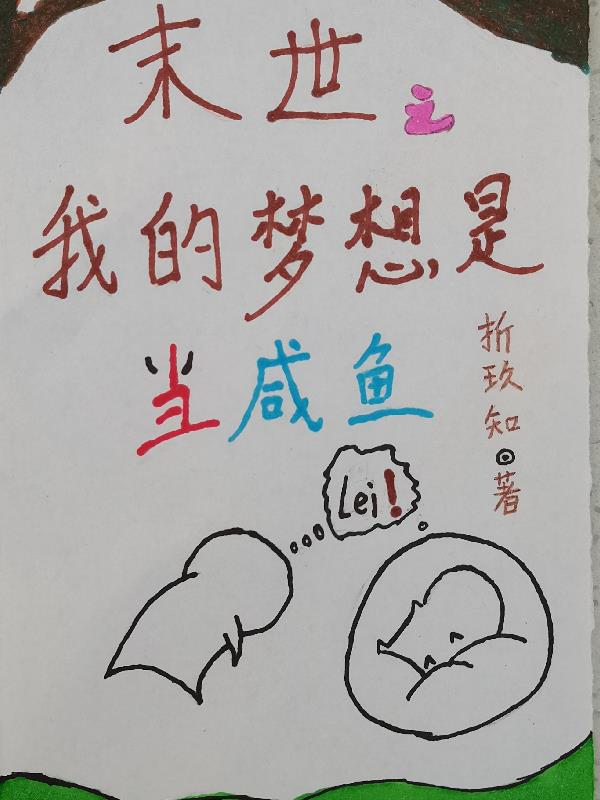 末世之
我的梦想是
当咸鱼
折玖知◎著
Lei!